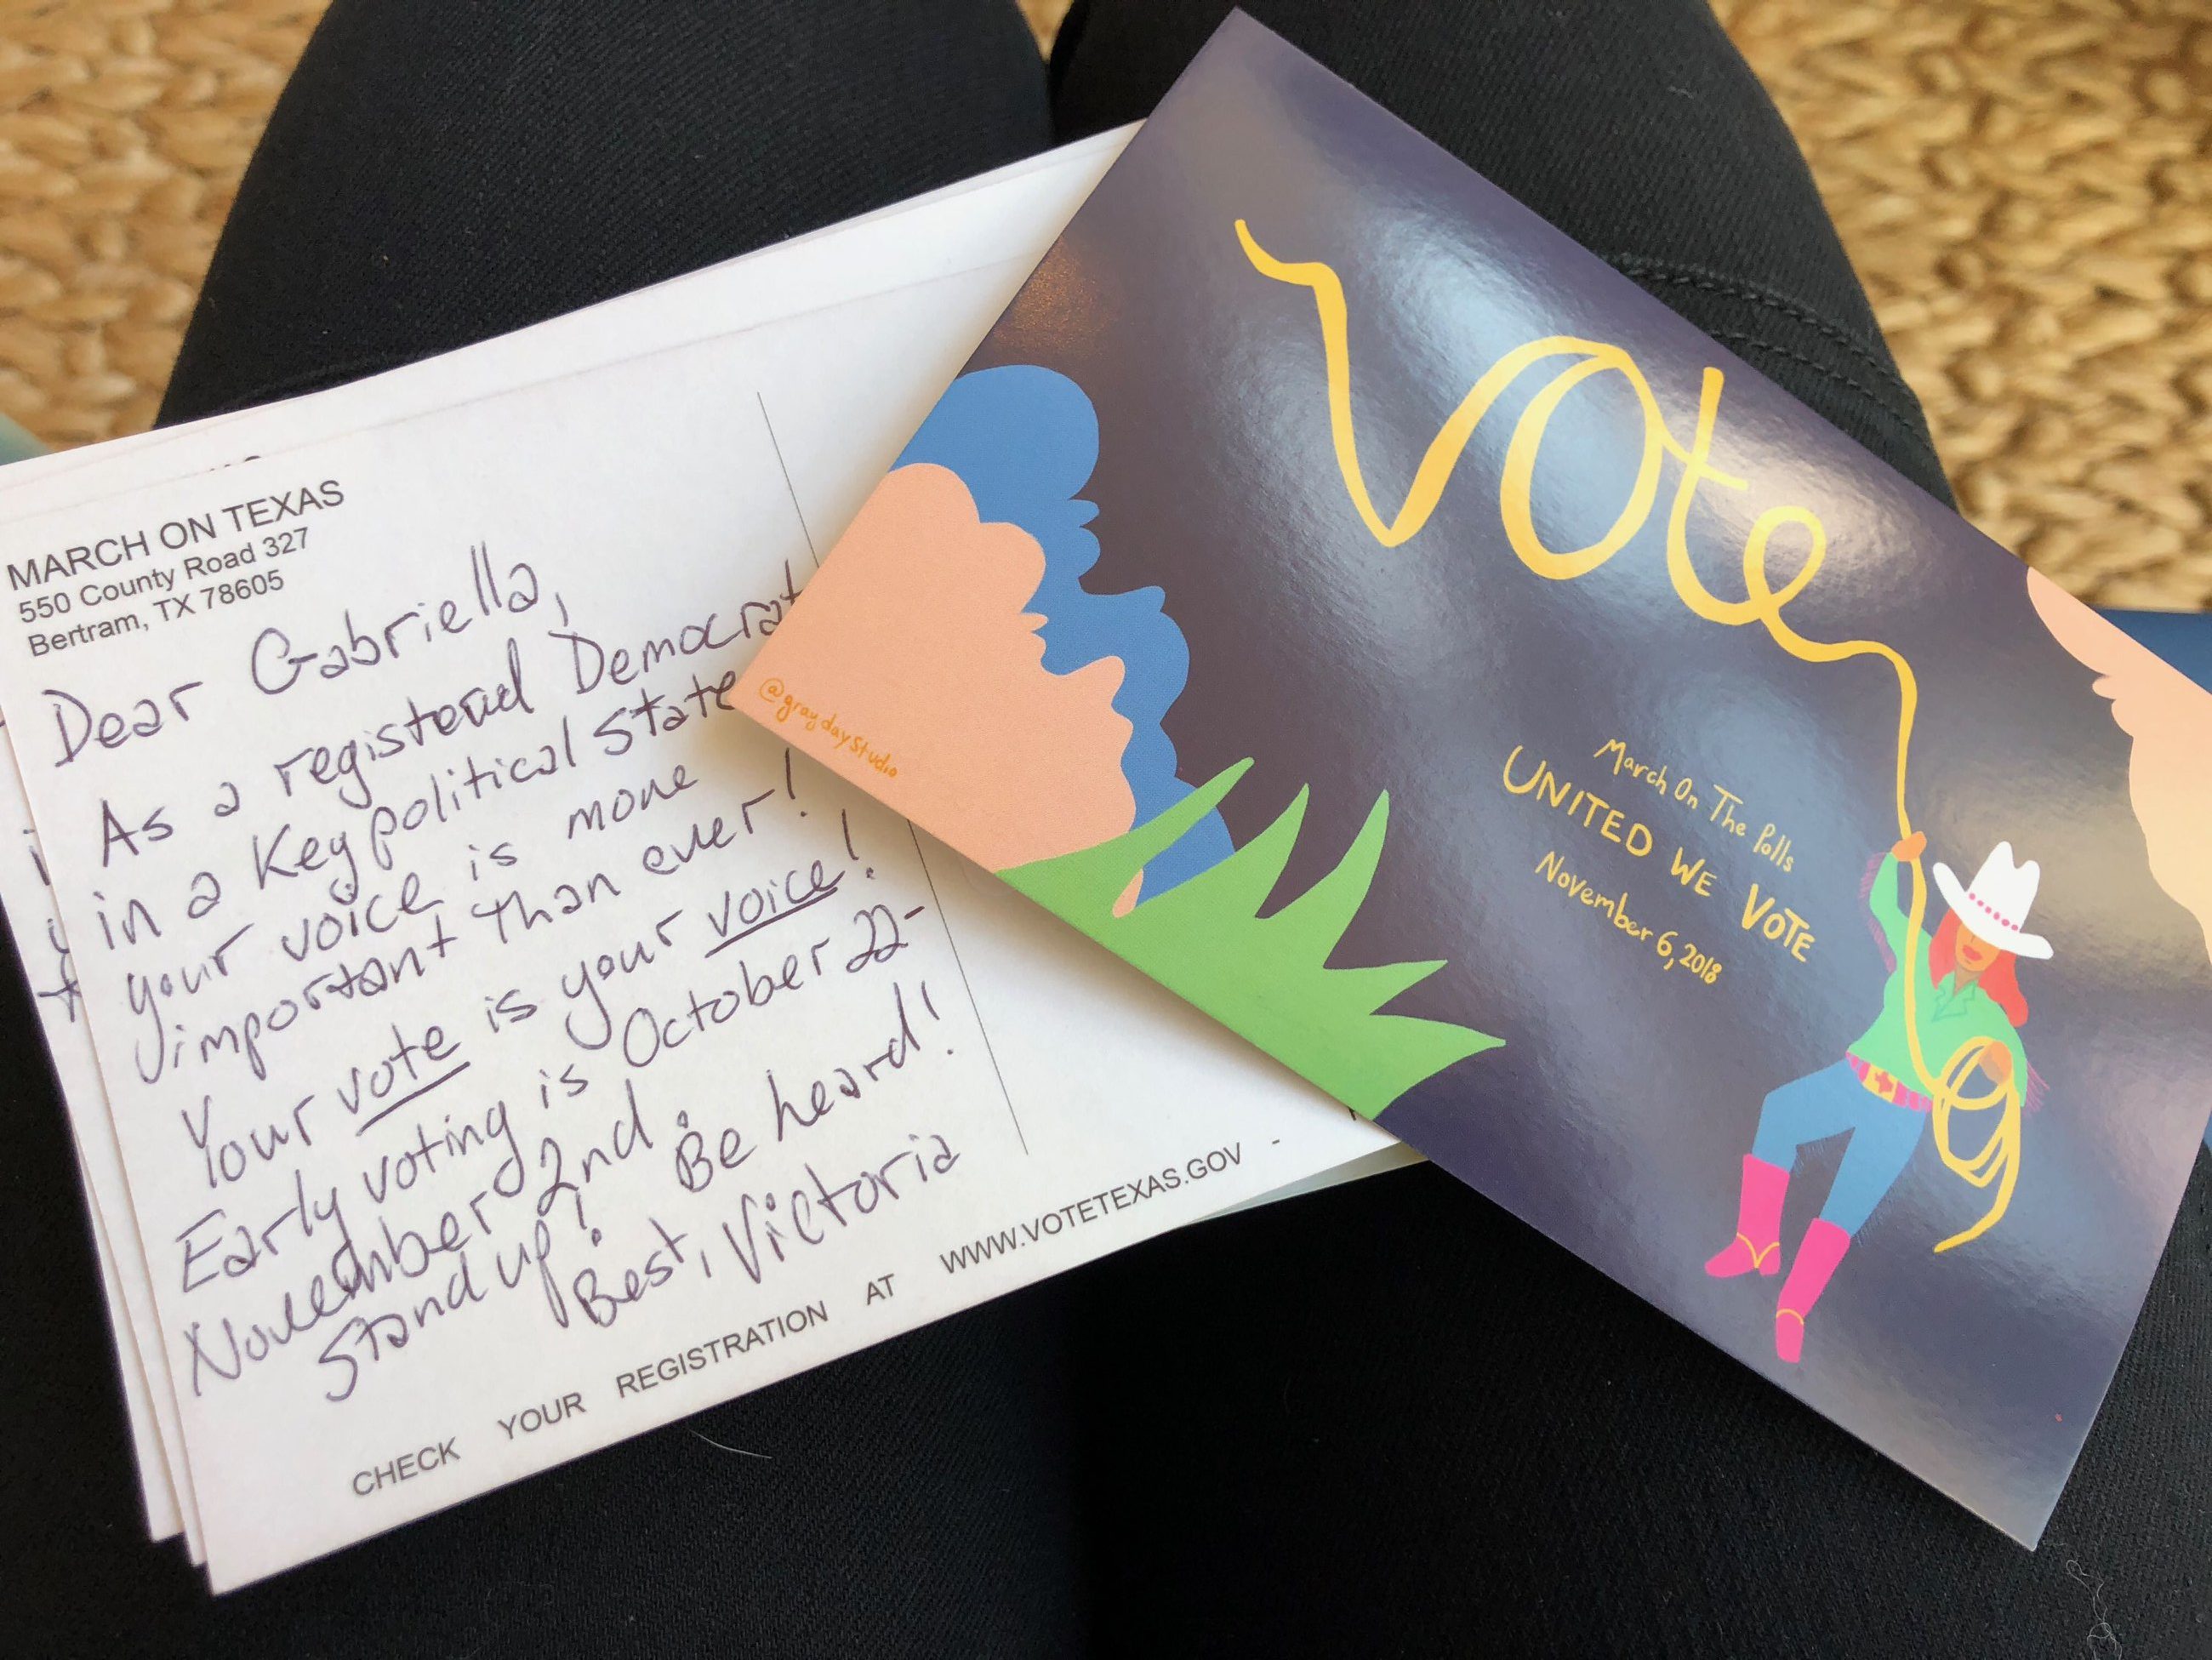 MARCH ON TEXAS
550 County Road 327
Bertram, TX 78605
Dear Gabriella,
As a registered Democrat
in a Key political State
your voice is more
important than ever!
Your vote is your voice!
Early voting is October 22-
November 2nd.
Stand up! Be heard!
Best, Victoria
CHECK YOUR REGISTRATION AT WWW.VOTETEXAS.GOV -
Vote
March On The Polls
UNITED WE VOTE
November 6, 2018
@graydaystudio